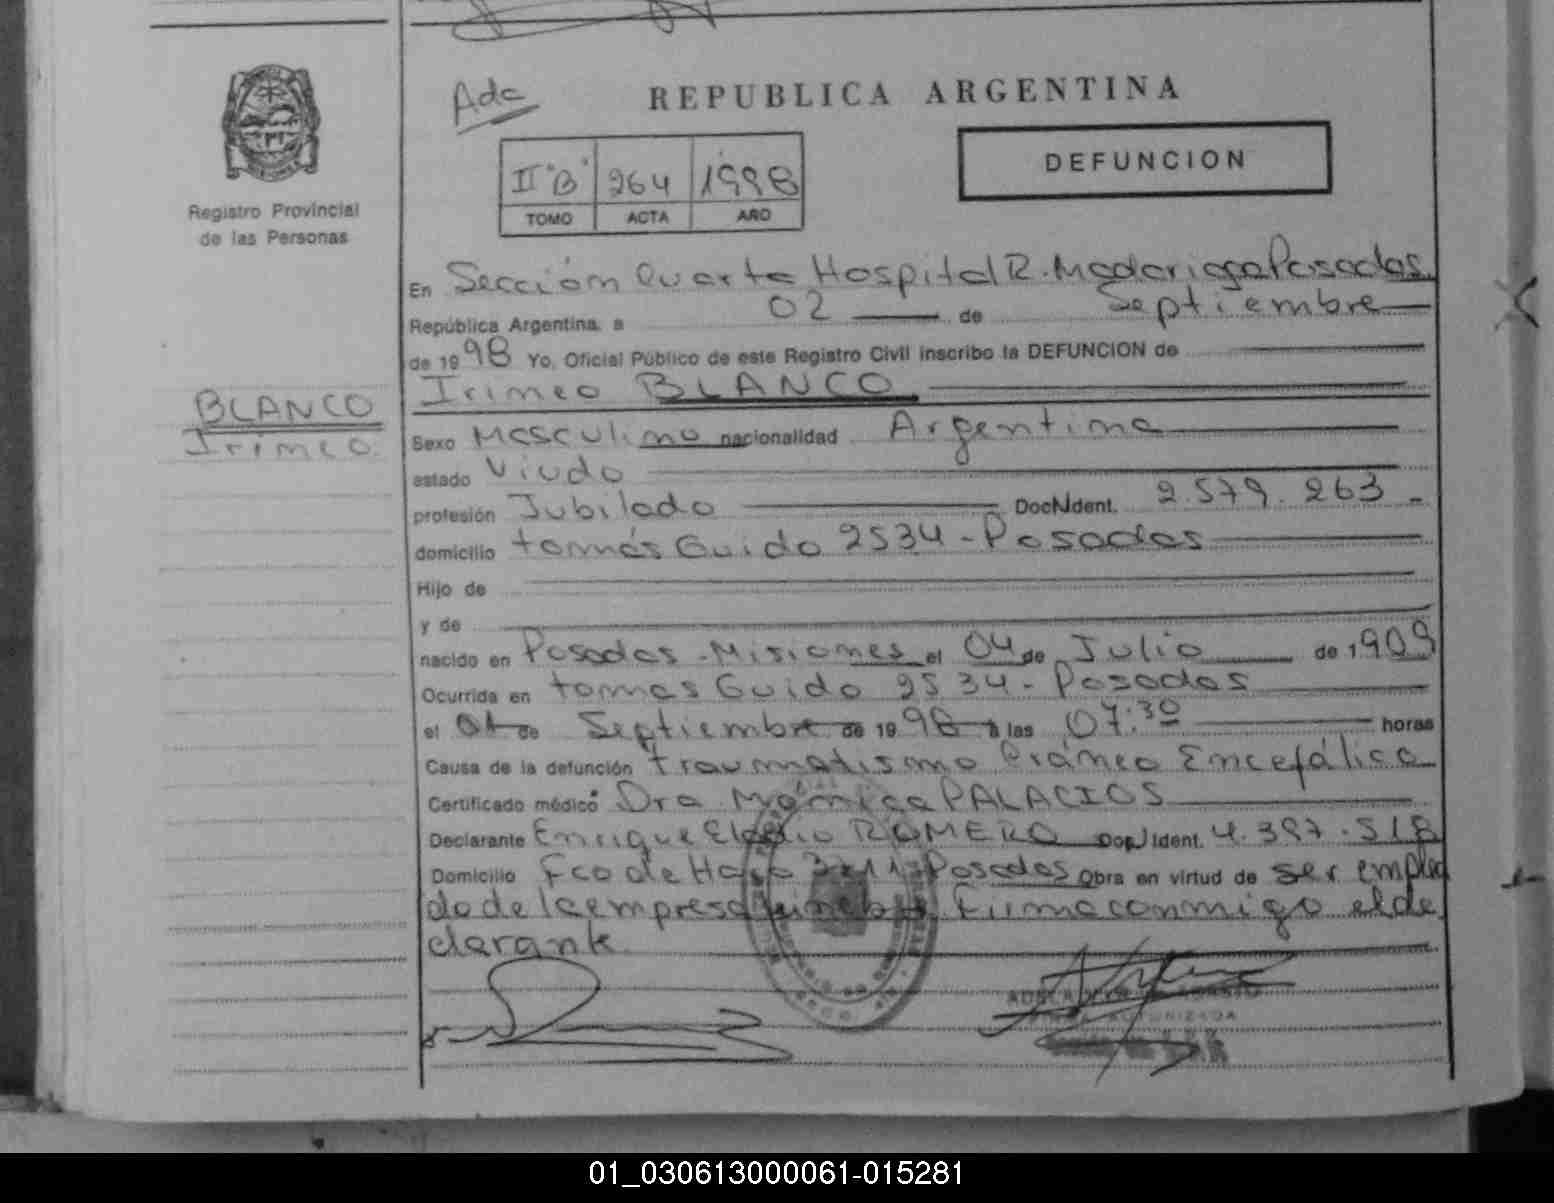 Ada
REPUBLICA ARGENTINA
DEFUNCION
II "B" 264 1998
TOMO ACTA AÑO
Registro Provincial
de las Personas
En Sección Cuarta Hospital R. Madariaga Posadas
República Argentina, a 02 de Septiembre
de 1998 Yo, Oficial Público de este Registro Civil inscribo la DEFUNCION de
Irineo BLANCO
BLANCO
Irineo
Sexo Masculino nacionalidad Argentina
estado Viudo
profesión Jubilado Doc N Ident. 2.579.263
domicilio tomás Guido 2534 - Posadas
Hijo de
y de
nacido en Posadas - Misiones el 04 de Julio de 1909
Ocurrida en tomas Guido 2534 - Posadas
el 01 de Septiembre de 1998 a las 07:30 horas
Causa de la defunción traumatismo Cráneo Encefálico
Certificado médico Dra. Mónica PALACIOS
Declarante Enrique Eladio ROMERO Doc N Ident. 4.397.518
Domicilio Fco de Haro Posadas Obra en virtud de ser emplea
do de la empresa fúnebre. Firma conmigo el de
clarante
AUTORIZADA
01_030613000061-015281